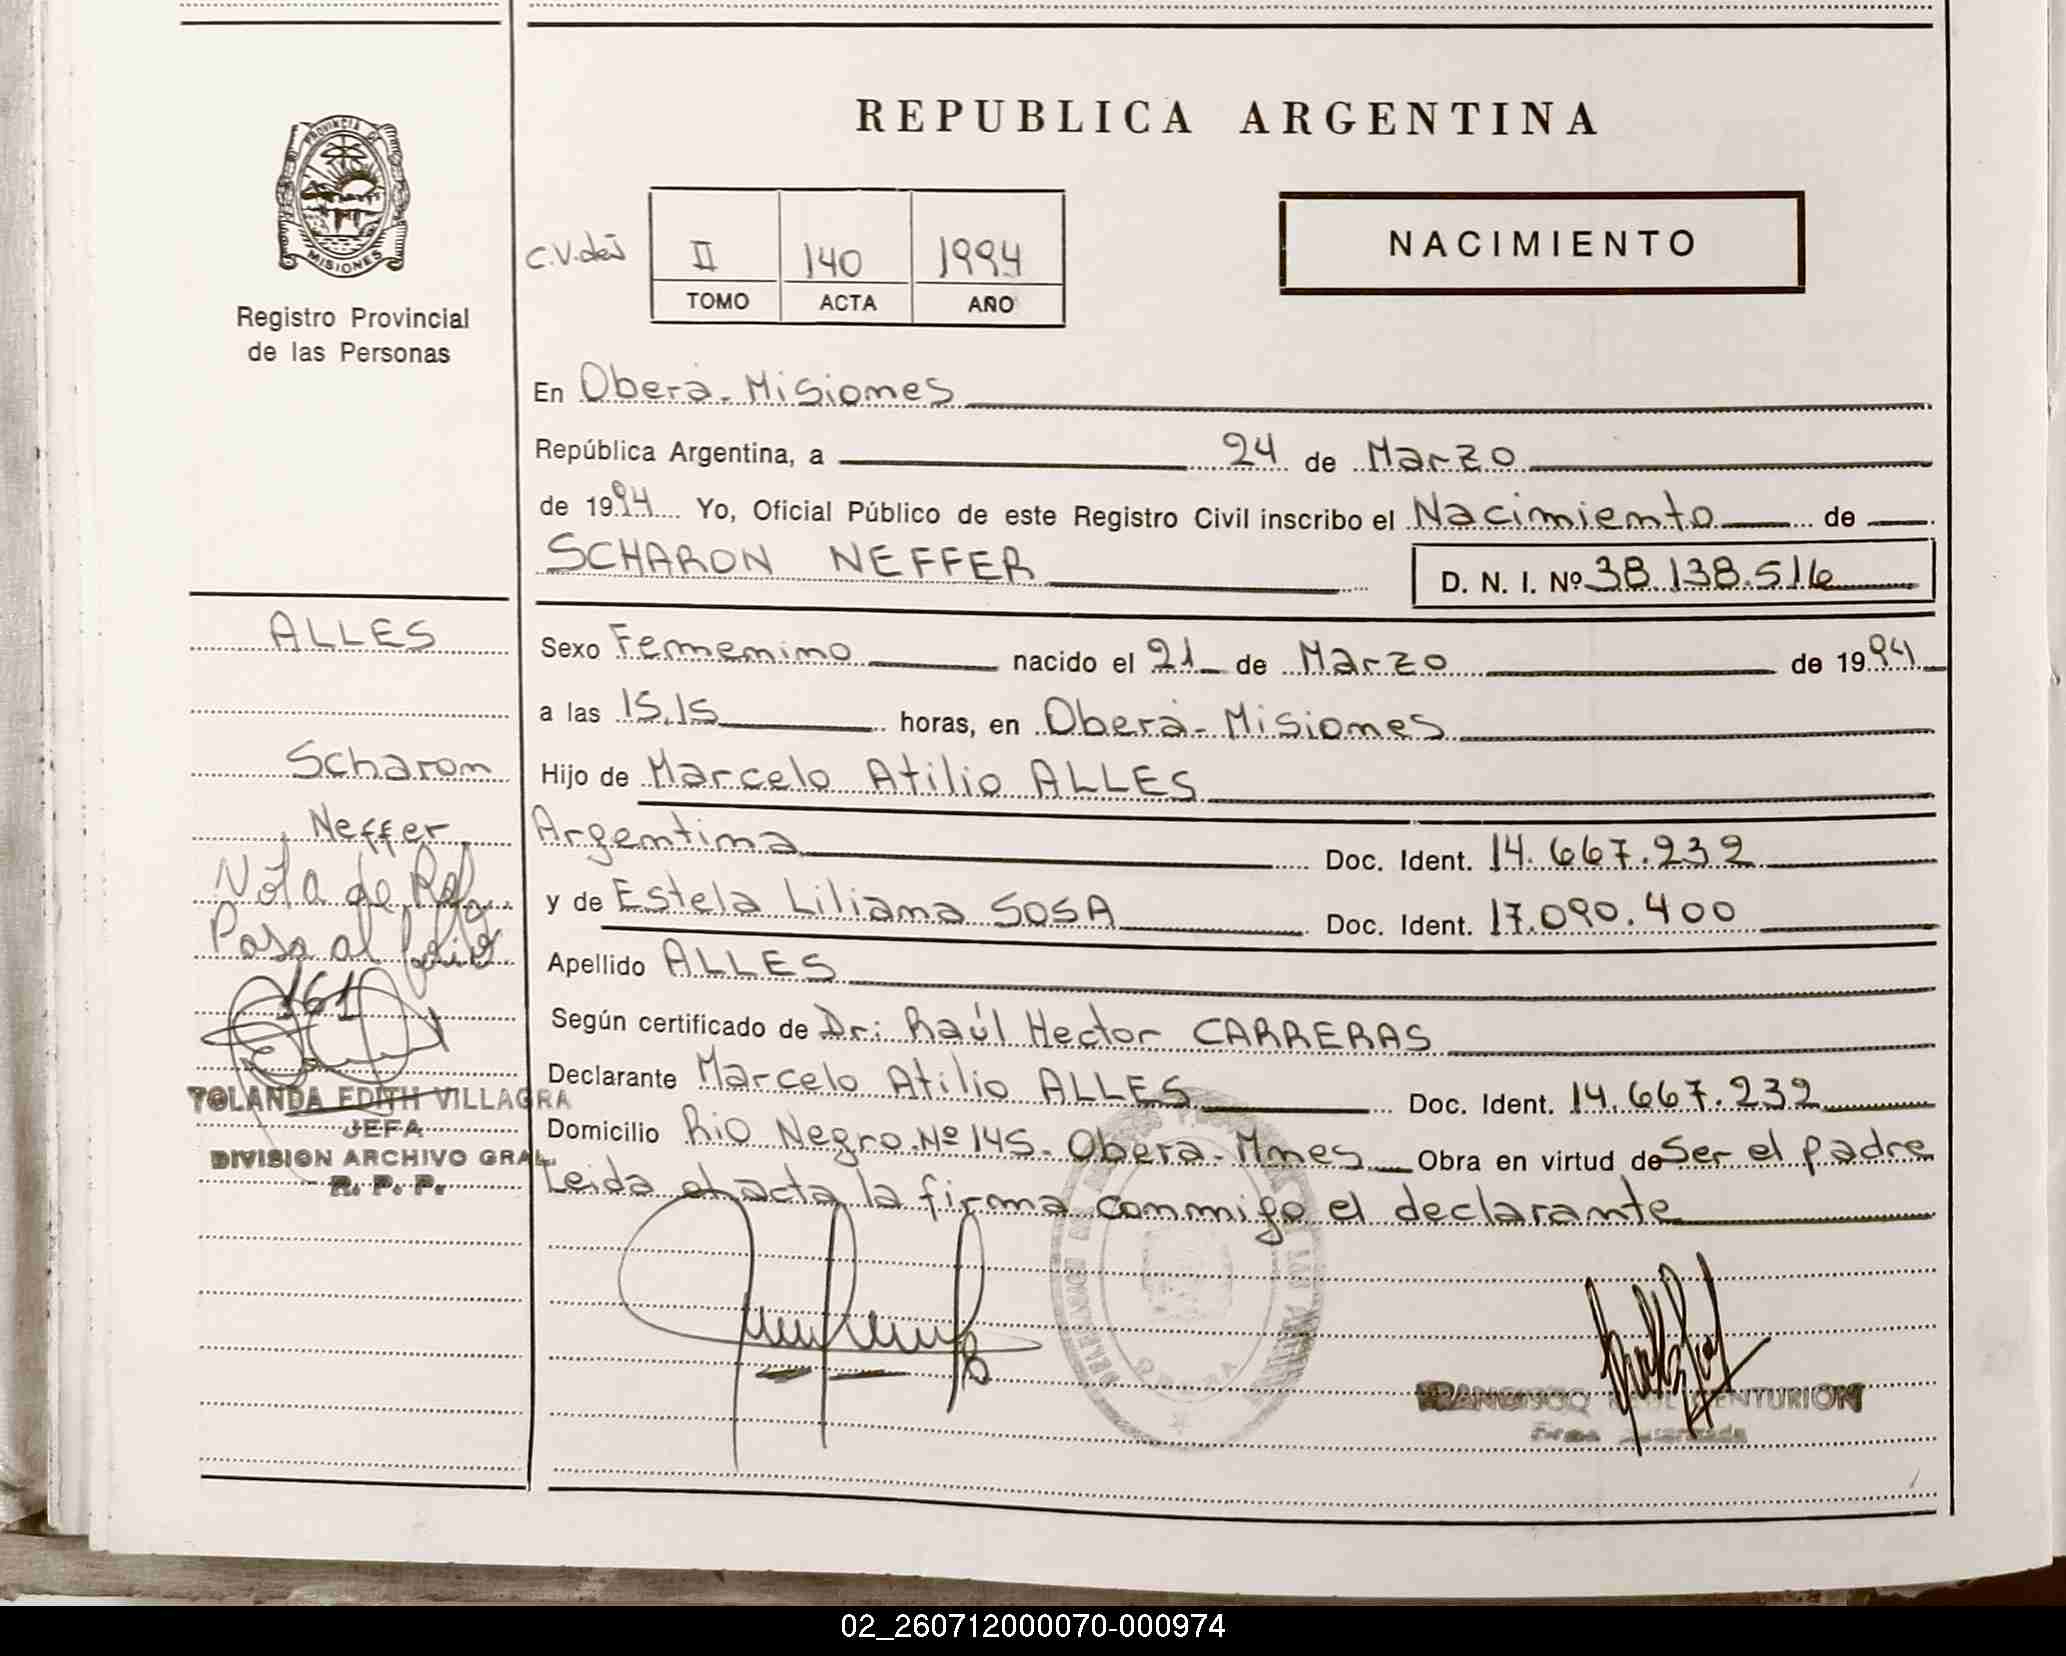 REPUBLICA ARGENTINA
PROVINCIA DE
MISIONES
Registro Provincial
de las Personas
NACIMIENTO
II 140 1994
TOMO ACTA AÑO
En Oberá - Misiones
República Argentina, a 24 de Marzo
de 1994 Yo, Oficial Público de este Registro Civil inscribo el Nacimiento de
SCHARON NEFFER D. N. I. Nº 38.138.516
ALLES
Scharon
Neffer
Nota de Ref.
Pasa al folio
161
YOLANDA EDITH VILLAGRA
JEFA
DIVISION ARCHIVO GRAL.
R. P. P.
Sexo Femenino nacido el 21 de Marzo de 1994
a las 15.15 horas, en Oberá - Misiones
Hijo de Marcelo Atilio ALLES
Argentina Doc. Ident. 14.667.232
y de Estela Liliana SOSA Doc. Ident. 17.090.400
Apellido ALLES
Según certificado de Dr: Raúl Hector CARRERAS
Declarante Marcelo Atilio ALLES Doc. Ident. 14.667.232
Domicilio Rio Negro Nº 145. Oberá - Mnes Obra en virtud de Ser el padre
Leida el acta la firma conmigo el declarante
OBERA
FRANCISCO CENTURION
02_260712000070-000974